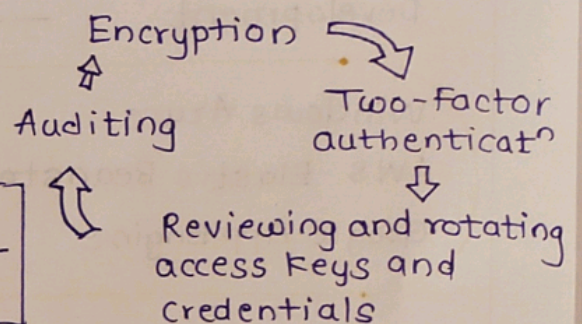 Encryption
Two-Factor
Auditing
authenticatn
Reviewing and rotating
access keys and
credentials